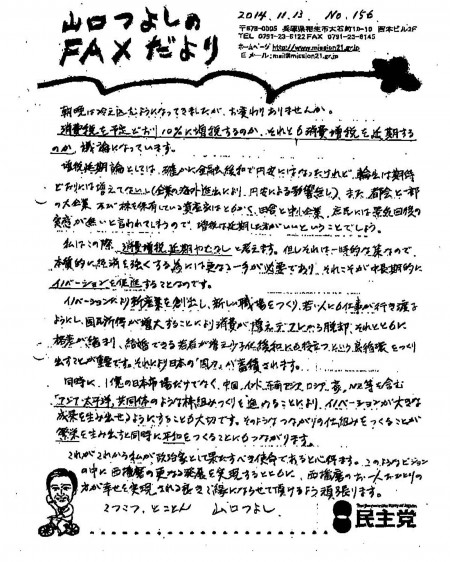 山口つよしの
FAXだより
2014.11.13 No.156
〒678-0005 兵庫県相生市大石町19-10 西本ビル2F
TEL 0791-23-6122 FAX 0791-23-6145
ホームページ http://www.mission21.gr.jp
Eメール:mail@mission21.gr.jp
朝晩は冷え込むようになってきましたが、お変わりありませんか。
消費税を予定どおり10%に増税するのか、それとも消費増税を延期する
のか、議論になっています。
増税延期論としては、確かに金融緩和で円安にはなったけれど、輸出は期待
どおりには増えてない(企業の海外進出により、円安による影響無し)、また、都会と一部
の大企業、及び株を保有している資産家はともかく、田舎と中小企業、庶民には景気回復の
実感が無いと言われてしまうので、増税は延期した方がいいということでしょう。
私はこの際、消費増税延期やむなしと考えます。但しそれは一時的な策なので、
本質的に経済を強くする為には更なる一手が必要であり、それこそが中長期的に
イノベーションを促進することなのです。
イノベーションにより新産業を創出し、新しい職場をつくり、若い人にも仕事が行き渡る
ようにし、国民所得が増大することにより消費が増え、デフレから脱却、それとともに
格差が縮まり、結婚できる若者が増え少子化緩和にも役立つという好循環をつくり
出すことが重要です。それにより日本の「国力」が蓄積されます。
同時に、1億の日本市場だけでなく、中国、インド、東南アジア、ロシア、豪、NZ等を含む
「アジア・太平洋共同体」のような枠組みづくりを進めることにより、イノベーションが大きな
成果を生み出せるようにすることも大切です。そのようなつながりの仕組みをつくることが
繁栄を生み出すと同時に平和をつくることにもつながります。
これがこれから私が政治家として果たすべき使命であると心得ます。このようなビジョン
の中に西播磨の更なる発展を実現するとともに、西播磨のお一人おひとりの
方が幸せを実現される良きご縁にならせて頂けるよう頑張ります。
こつこつ、とことん 山口つよし
The Democratic Party of Japan
民主党